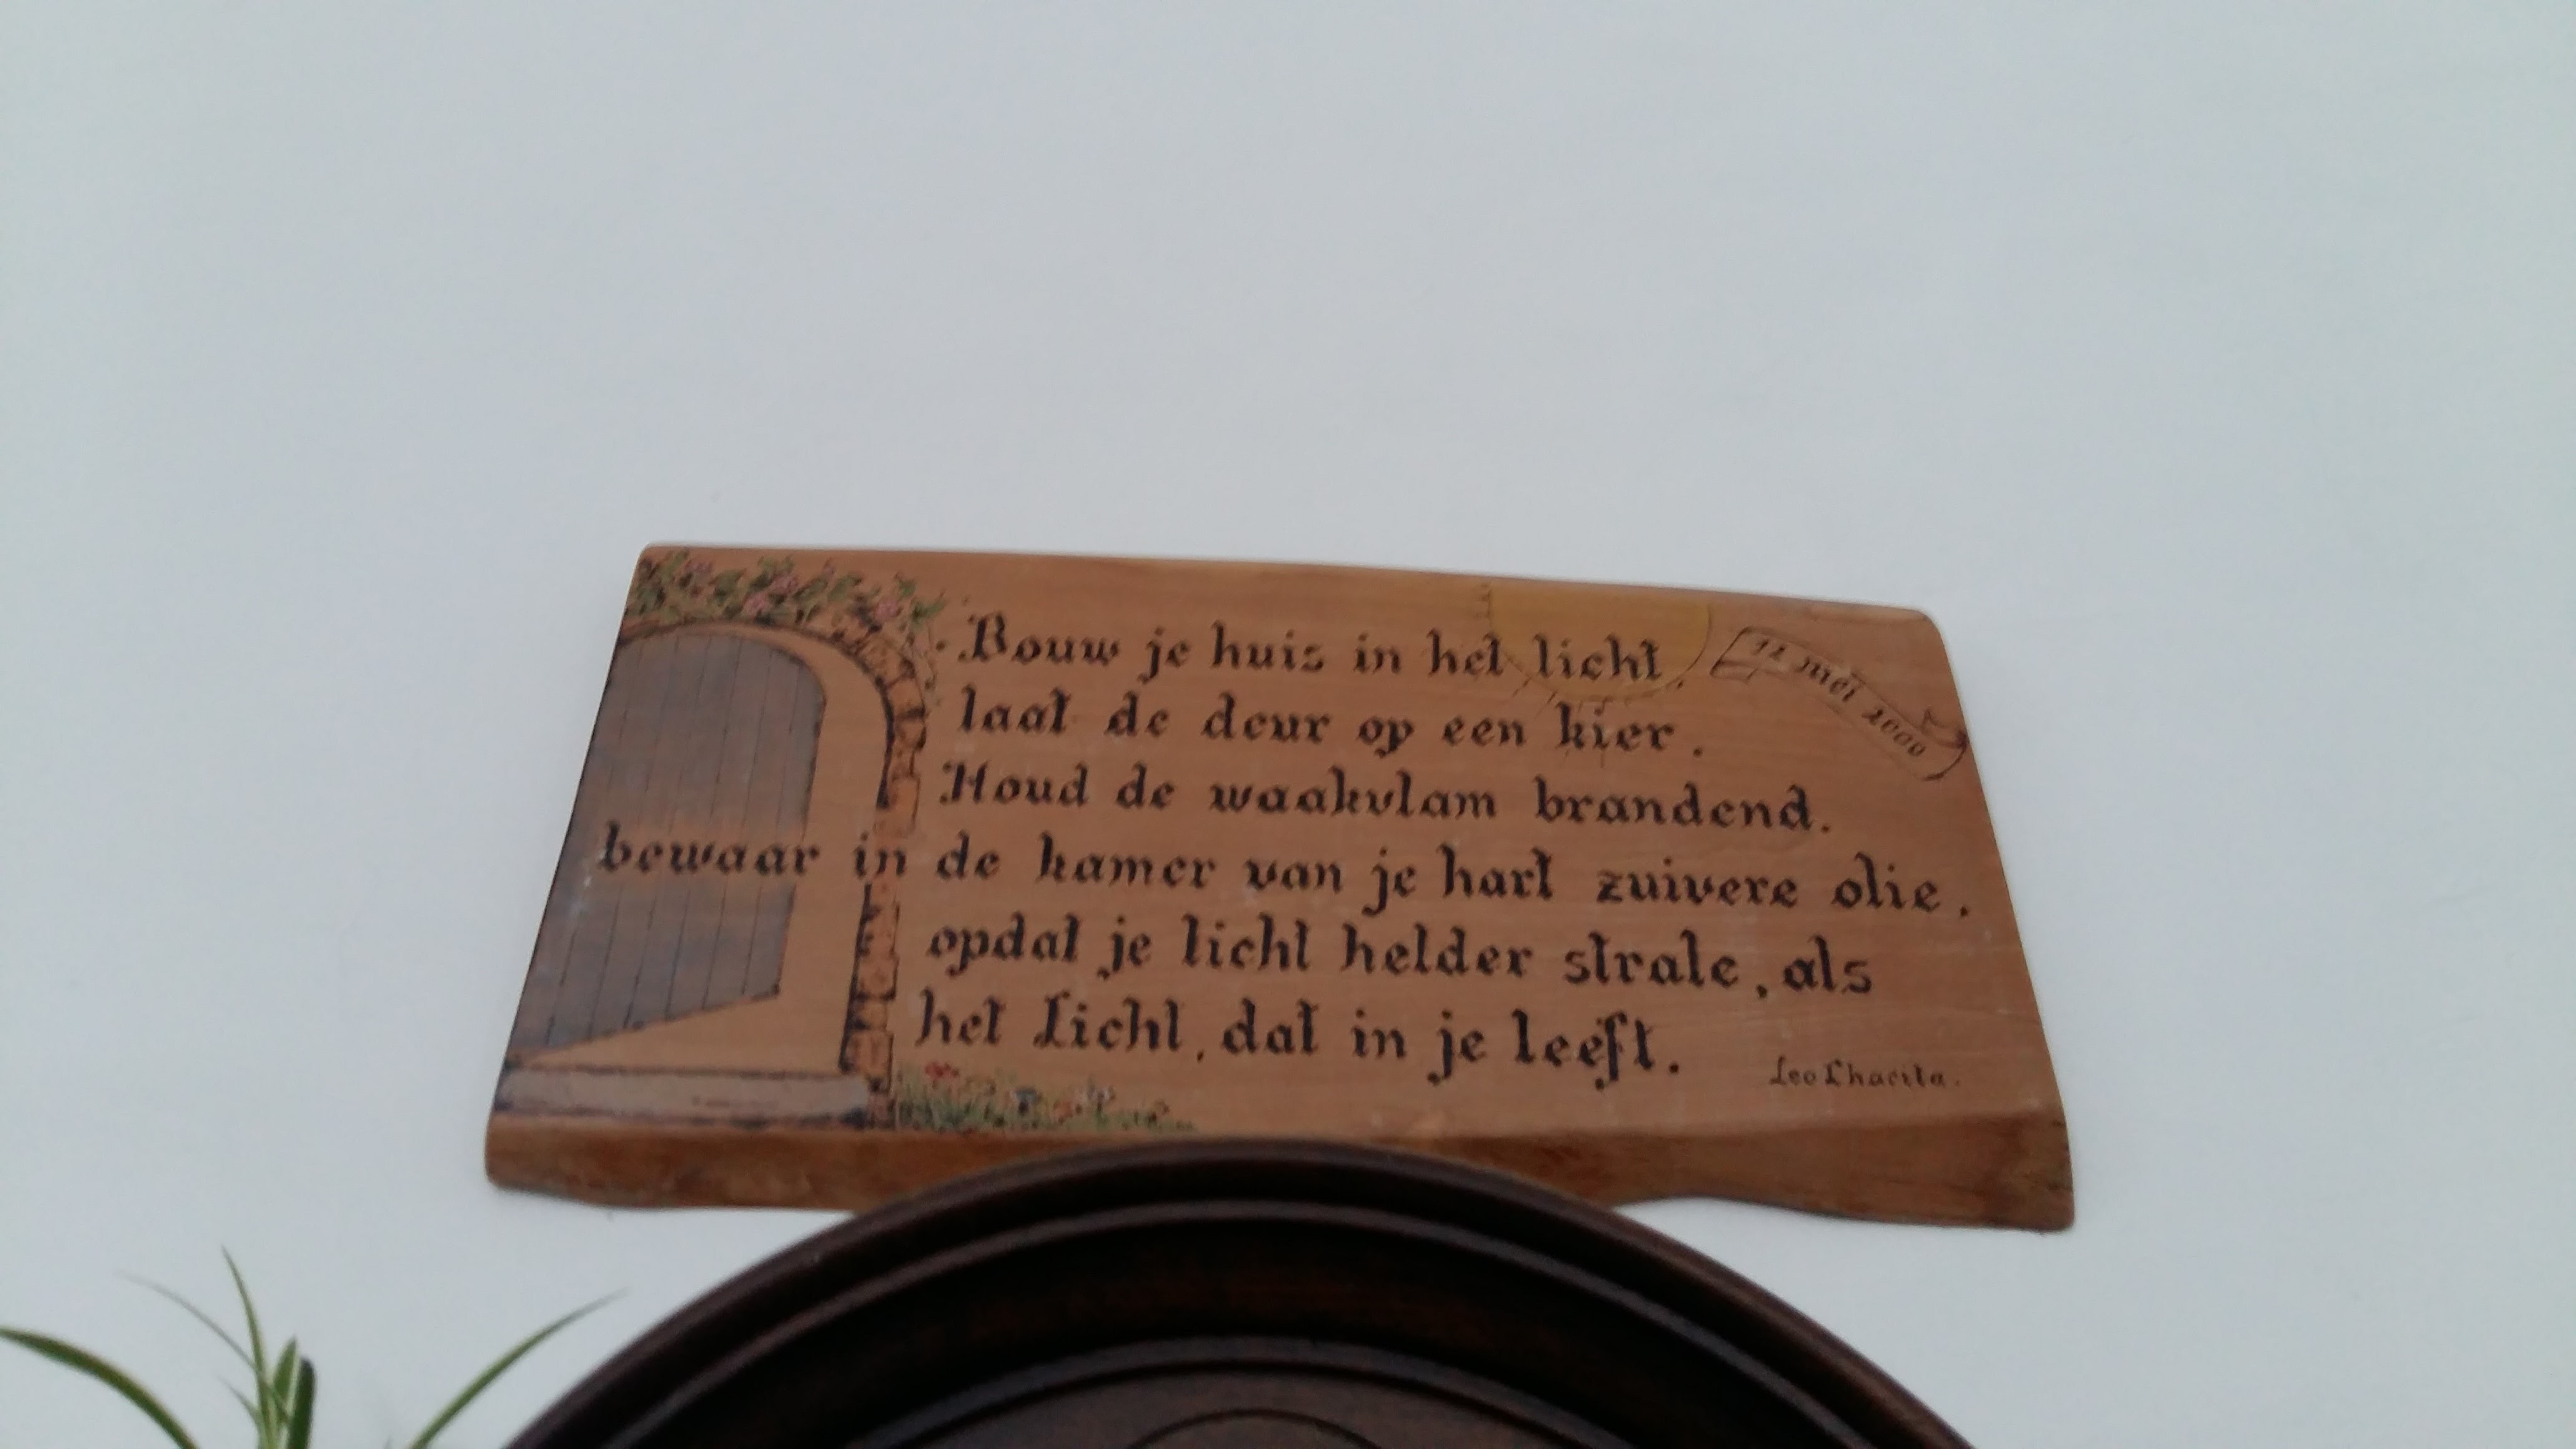 Bouw je huis in het licht,
laat de deur op een kier.
Houd de waakvlam brandend.
bewaar in de kamer van je hart zuivere olie,
opdat je licht helder strale, als
het Licht, dat in je leeft.
12 mei 2000